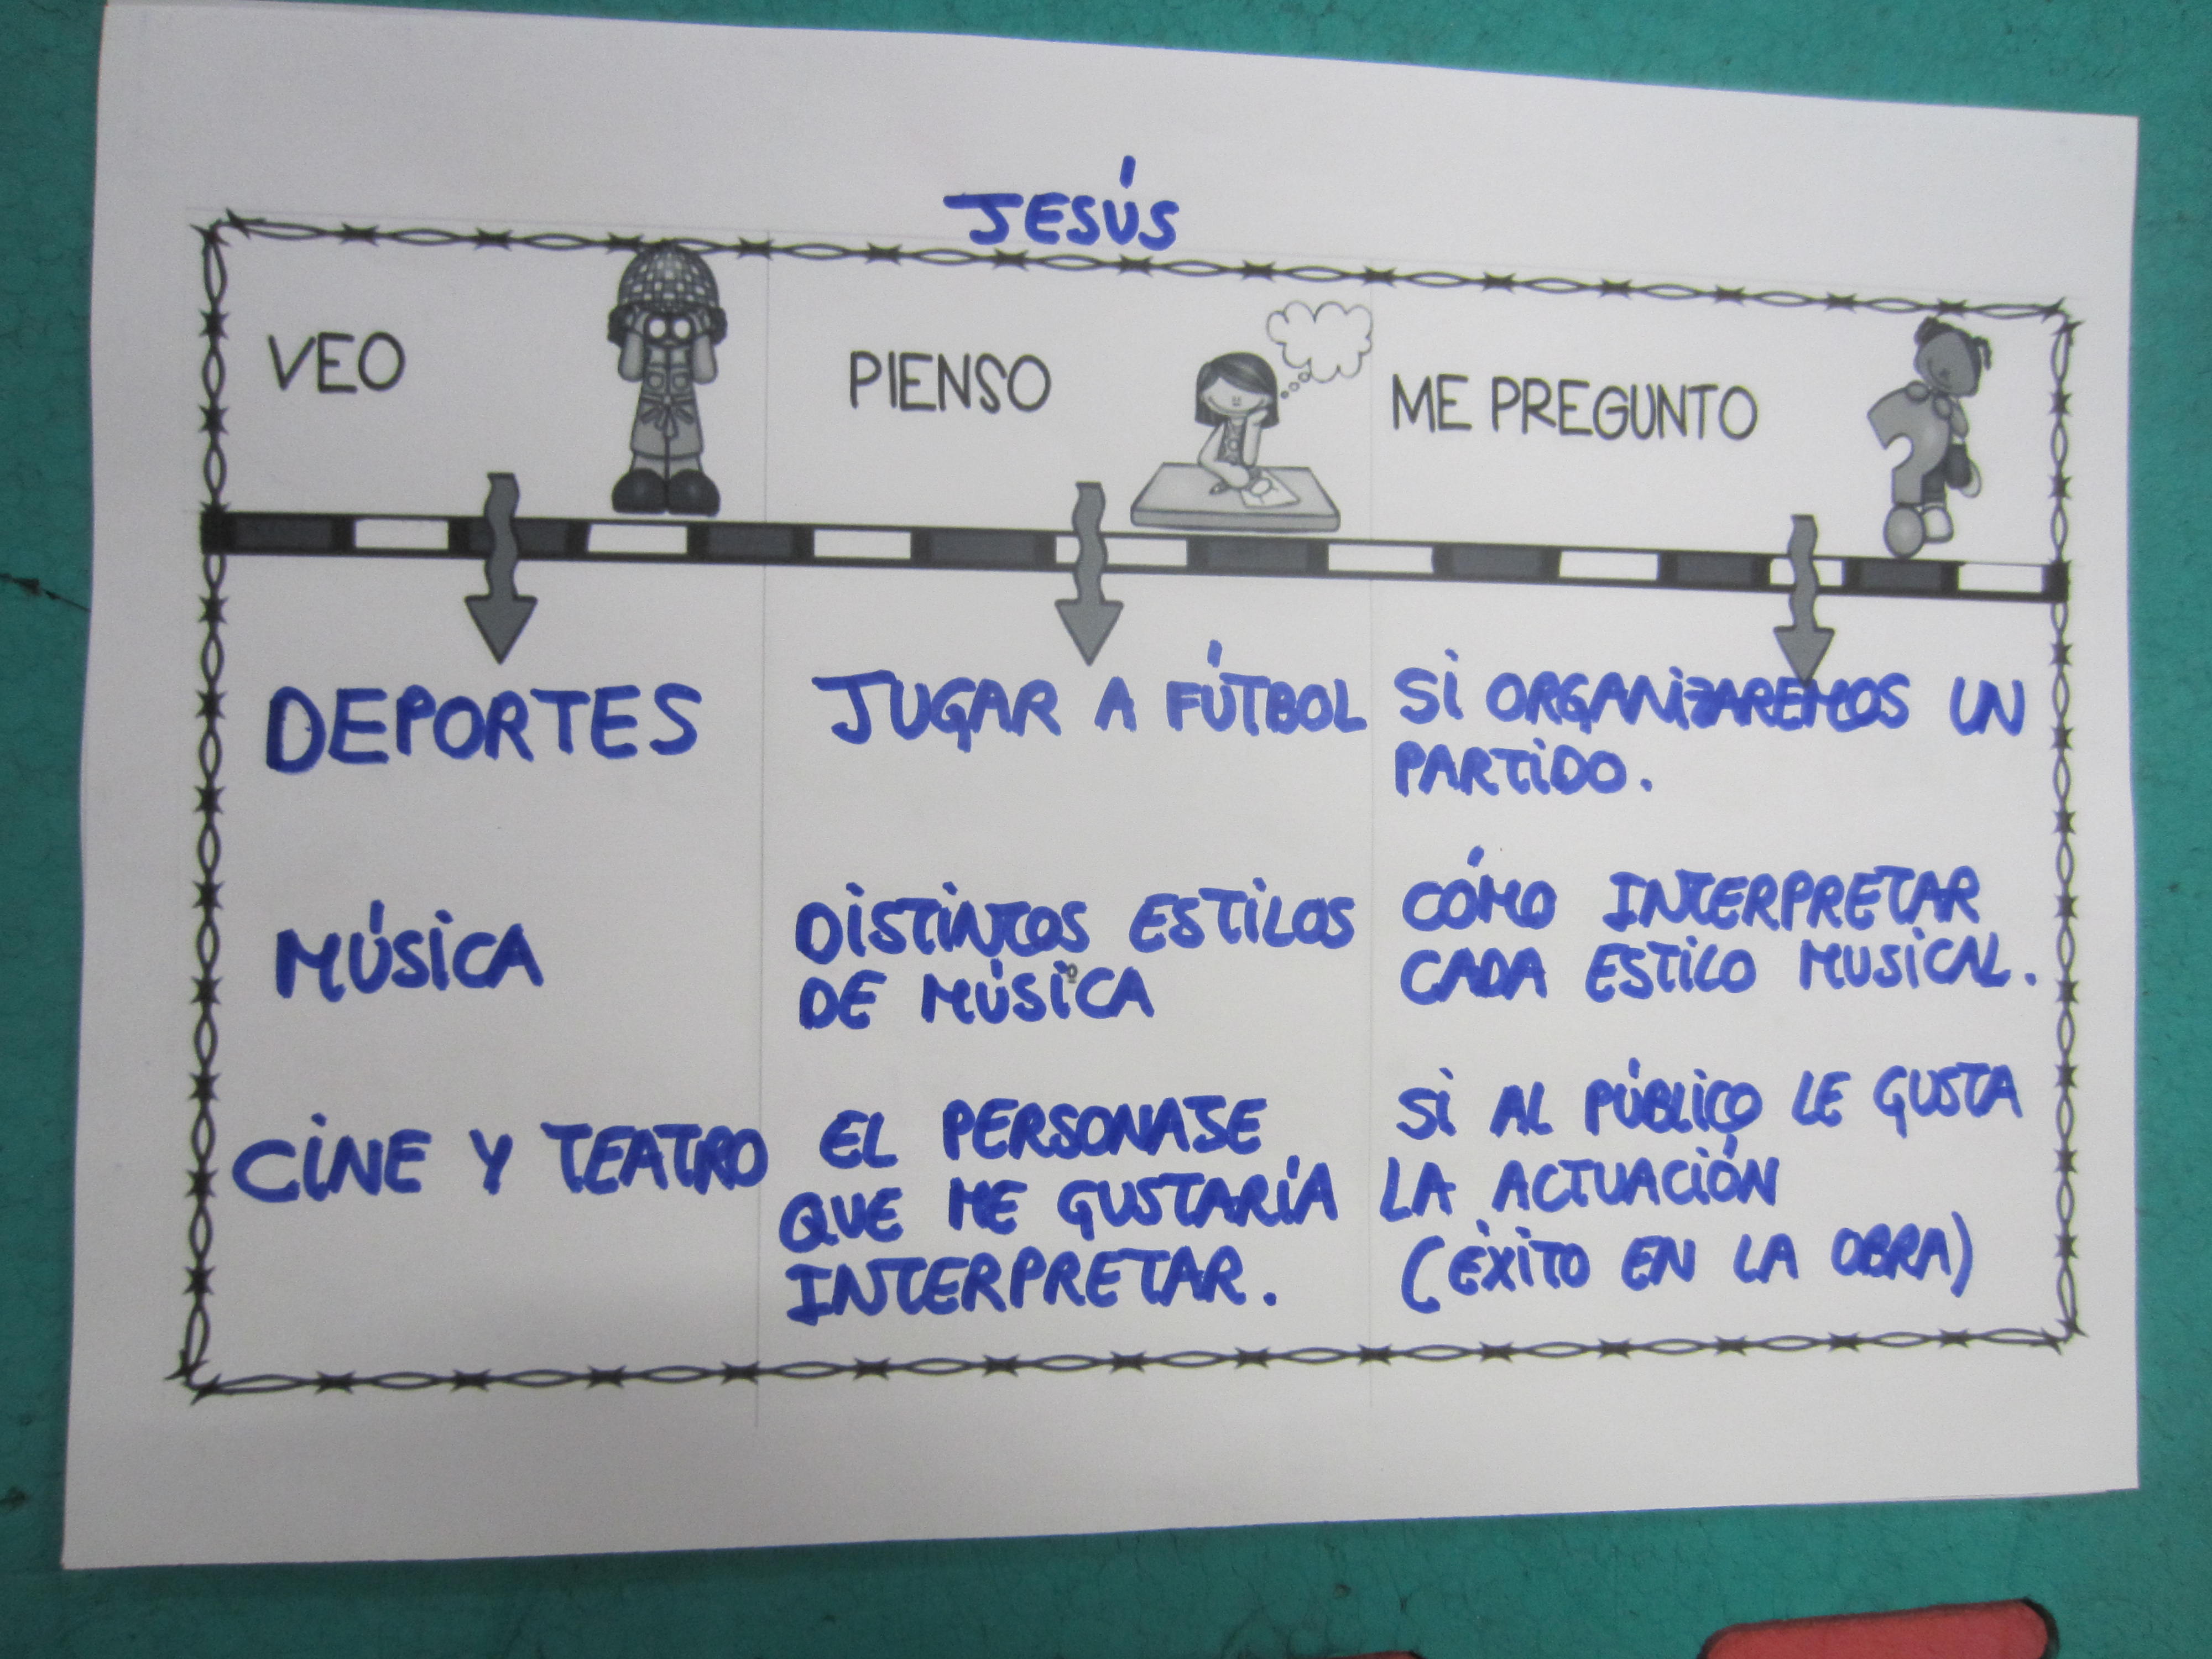 JESÚS
VEO
PIENSO
ME PREGUNTO
DEPORTES
JUGAR A FÚTBOL
SI ORGANIZAREMOS UN
PARTIDO.
MÚSICA
DISTINTOS ESTILOS
DE MÚSICA
CÓMO INTERPRETAR
CADA ESTILO MUSICAL.
CINE Y TEATRO
EL PERSONAJE
QUE ME GUSTARÍA
INTERPRETAR.
SI AL PÚBLICO LE GUSTA
LA ACTUACIÓN
(ÉXITO EN LA OBRA)